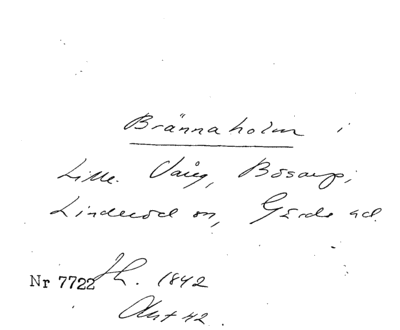 Brännaholm i
Lille Vång, Bösarp,
Linderöd sn, Gärds hd.
Nr 7722 1842
Akt 42.